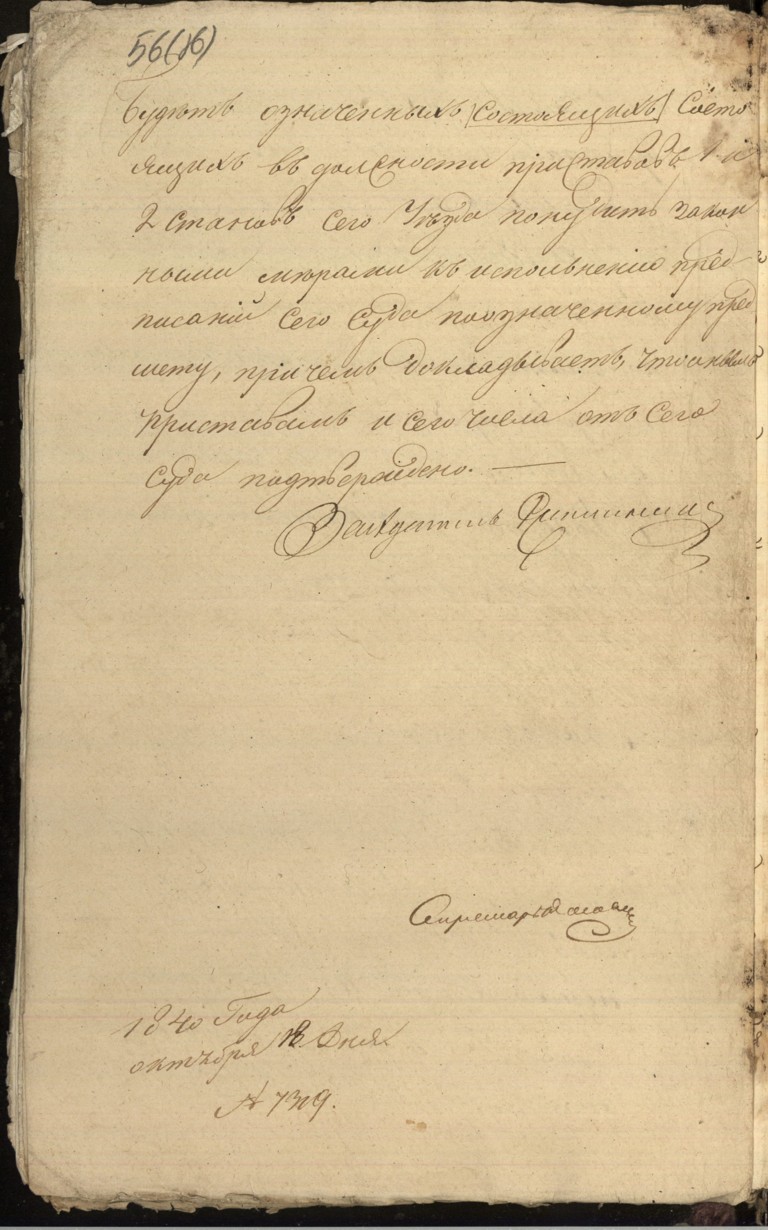 56(16)
будетъ означенныхъ [состоящихъ] Состо
ящихъ въ должности приставовъ 1 и
2 становъ сего Уѣзда понудить закон
ными мѣрами къ исполненію пред
писаній сего Суда поозначенному пред
мету, причемъ докладываетъ, что онымъ
приставамъ и сего числа отъ сего
суда подтверждено. —
Засѣдатель
Секретарь
1840 Года
октября 18 Дня
№ 7319.